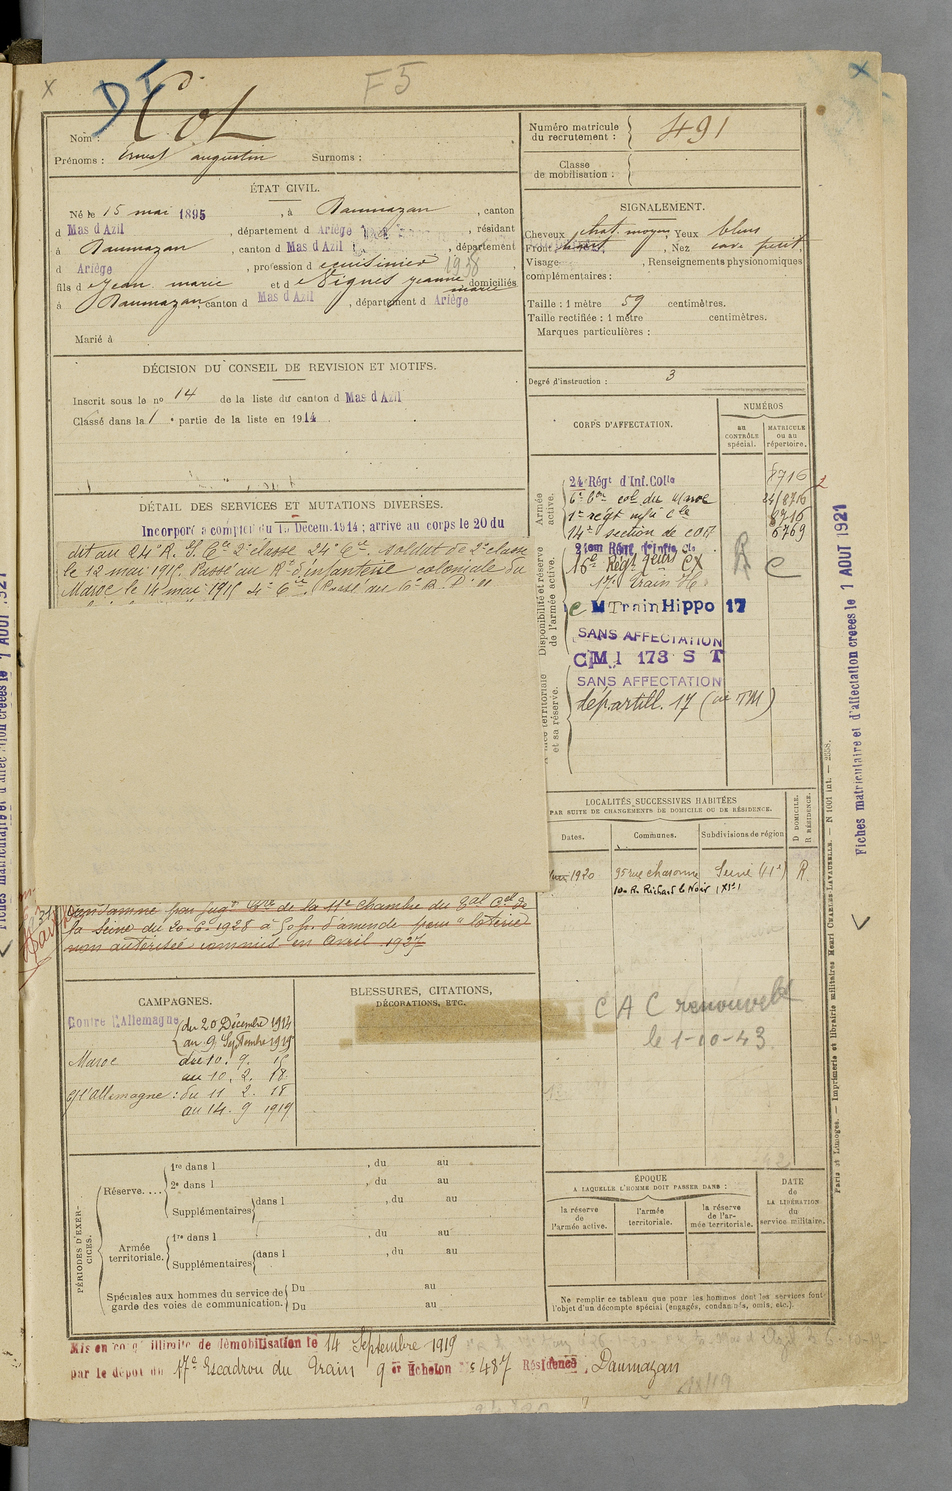 DI
F5
Nom : Col
Prénoms : Ernest augustin Surnoms :
Numéro matricule du recrutement : 491
Classe de mobilisation :
ÉTAT CIVIL.
Né le 15 mai 1895, à Daumazan, canton
d Mas d'Azil, département d Ariège, résidant
à Daumazan, canton d Mas d'Azil, département
d Ariège, profession d cuisinier 1938
fils d Jean marie et d Signes jeanne marie domiciliés
à Daumazan, canton d Mas d'Azil, département d Ariège
Marié à
SIGNALEMENT.
Cheveux chat. moyen, Yeux bleus
Front, Nez cave petit
Visage, Renseignements physionomiques
complémentaires :
Taille : 1 mètre 59 centimètres.
Taille rectifiée : 1 mètre centimètres.
Marques particulières :
Degré d'instruction : 3
DÉCISION DU CONSEIL DE REVISION ET MOTIFS.
Inscrit sous le no 14 de la liste du canton d Mas d'Azil
Classé dans la 1e partie de la liste en 1914
DÉTAIL DES SERVICES ET MUTATIONS DIVERSES.
Incorporé à compter du 15 Décem. 1914 ; arrivé au corps le 20 du
dit au 24e R. 2e classe 24e Cie. Soldat de 2e classe
le 12 mai 1915. Passé au Rt d'infanterie coloniale du
Maroc le 14 mai 1915 4e Cie. Passé au
Condamné par jugt de la 11e chambre du
la Seine du 20-6-1928 à 50 fr. d'amende pour "loterie
non autorisée commis en avril 1927
CORPS D'AFFECTATION.
NUMÉROS
au CONTRÔLE spécial.
MATRICULE ou au répertoire.
Armée active.
24 Régt d'Inf. Colle 8716
6e Bon col. du Maroc 24/8716
1er regt infie Cle 8716
14e section de COA 6769
Disponibilité et réserve de l'armée active.
21em Régt d'Infie Cle
16e Regt
17e Train
C M Train Hippo 17
SANS AFFECTATION
CMI 173 S T
SANS AFFECTATION
dép. artill. 17 (vié TM)
et sa réserve.
LOCALITÉS SUCCESSIVES HABITÉES
PAR SUITE DE CHANGEMENTS DE DOMICILE OU DE RÉSIDENCE.
Dates. Communes. Subdivisions de région
D DOMICILE.
R RÉSIDENCE.
1920 95 rue charonne Seine (11e) R.
10 R. Richard le Noir (XIe)
C A C renouvelé
le 1-10-43
CAMPAGNES.
Contre l'Allemagne du 20 Décembre 1914
au 9 Septembre 1915
Maroc du 10. 9. 15
au 10. 2. 18
C/ l'allemagne : du 11 2. 18
au 14. 9 1919
BLESSURES, CITATIONS,
DÉCORATIONS, ETC.
PÉRIODES D'EXERCICES.
Réserve....
1re dans l , du au
2e dans l , du au
Supplémentaires dans l , du au
Armée territoriale.
1re dans l , du au
Supplémentaires dans l , du au
Spéciales aux hommes du service de garde des voies de communication.
Du au
Du au
ÉPOQUE
A LAQUELLE L'HOMME DOIT PASSER DANS :
la réserve de l'armée active.
l'armée territoriale.
la réserve de l'armée territoriale.
DATE de LA LIBÉRATION du service militaire.
Ne remplir ce tableau que pour les hommes dont les services font
l'objet d'un décompte spécial (engagés, condamnés, omis, etc.).
Mis en congé illimité de démobilisation le 14 Septembre 1919
par le dépôt du 17e Escadron du Train 9er Échelon No 487 Résidence : Daumazan
Fiches matriculaire et d'affectation créées le 1 AOUT 1921
Paris et Limoges. — Imprimerie et librairie militaires Henri CHARLES-LAVAUZELLE. — N 1001 int.